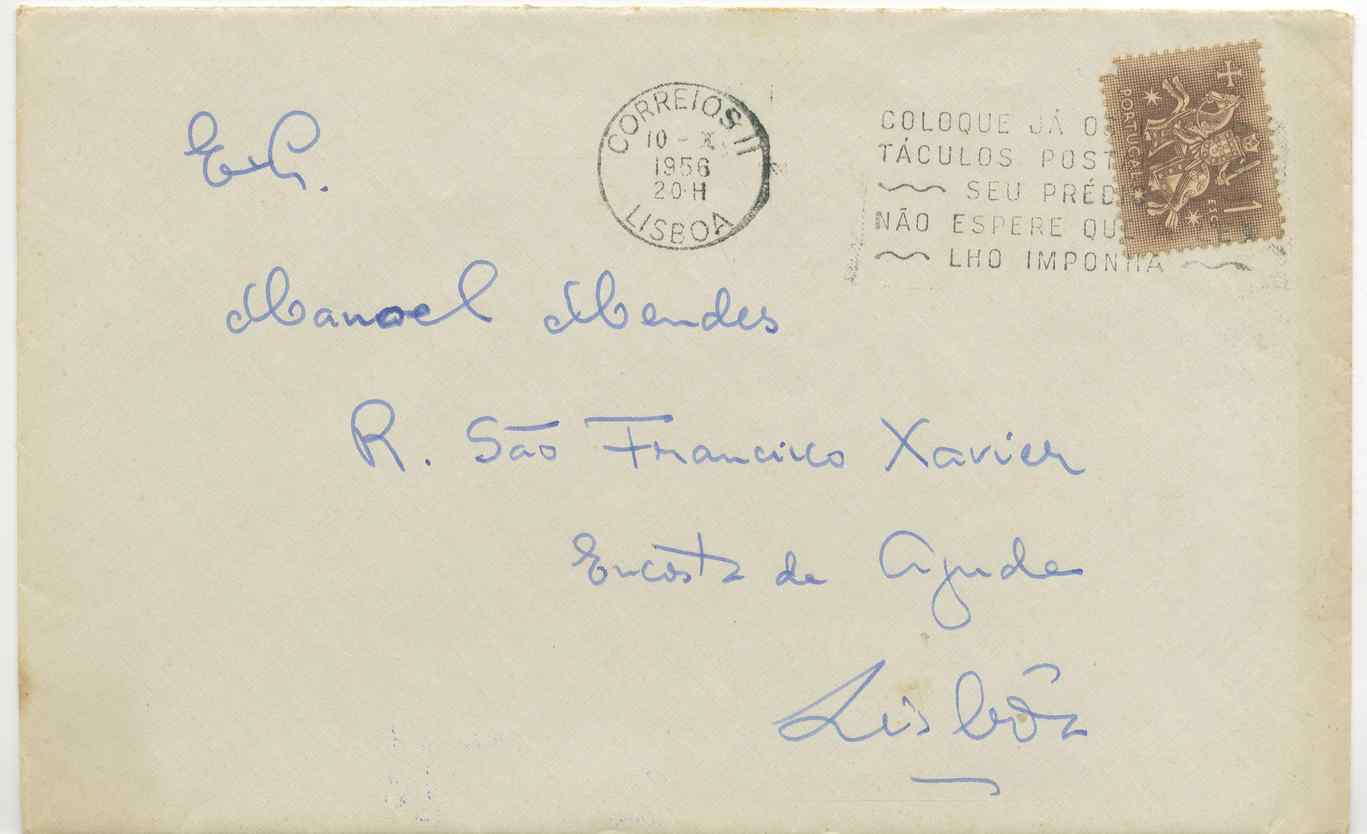 CORREIOS 11
10 - X
1956
20 H
LISBOA
COLOQUE JÁ O
TÁCULOS POST
SEU PRÉD
NÃO ESPERE QUE
LHO IMPONHA
PORTUGAL
CTC
1
Manoel Mendes
R. São Francisco Xavier
Encosta da Ajuda
Lisbôa